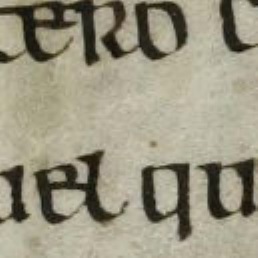 tero
uel qu